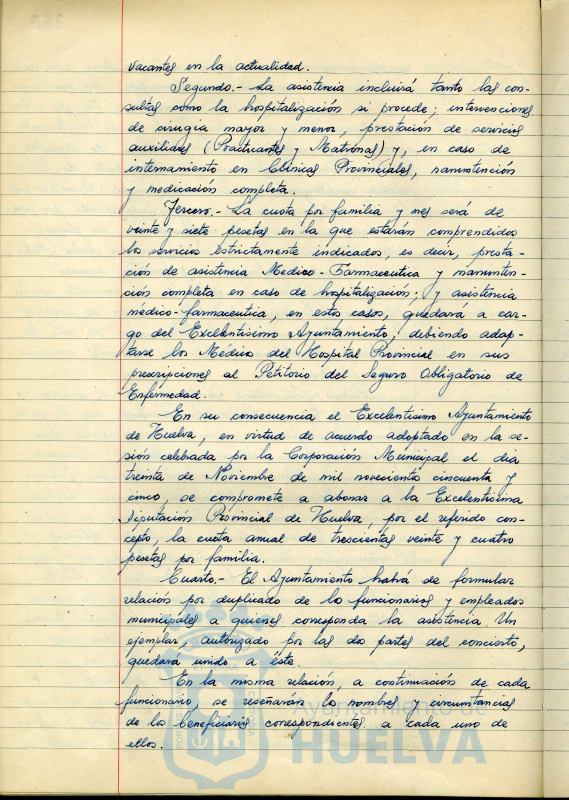 vacantes en la actualidad.
Segundo.- La asistencia incluirá tanto las con-
sultas como la hospitalización si procede; intervenciones
de cirugia mayor y menor, prestación de servicios
auxiliares (Practicantes y Matronas) y, en caso de
internamiento en Clínicas Provinciales, manutención
y medicación completa.
Tercero.- La cuota por familia y mes será de
veinte y siete pesetas en la que estarán comprendidos
los servicios estrictamente indicados, es decir, presta-
ción de asistencia Medico-Farmaceutica y manuten-
ción completa en caso de hospitalización; y asistencia
médico-farmaceutica, en estos casos, quedará a car-
go del Excelentisimo Ayuntamiento, debiendo adap-
tarse los Médicos del Hospital Provincial en sus
prescripciones al Petitorio del Seguro Obligatorio de
Enfermedad.
En su consecuencia el Excelentisimo Ayuntamiento
de Huelva, en virtud de acuerdo adoptado en la se-
sión celebrada por la Corporación Municipal el dia
treinta de Noviembre de mil novecientos cincuenta y
cinco, se compromete a abonar a la Excelentísima
Diputación Provincial de Huelva, por el referido con-
cepto, la cuota anual de trescientas veinte y cuatro
pesetas por familia.
Cuarto.- El Ayuntamiento habrá de formular
relación por duplicado de los funcionarios y empleados
municipales a quienes corresponda la asistencia. Un
ejemplar, autorizado por las dos partes del concierto,
quedará unido a éste.
En la misma relación, a continuación de cada
funcionario, se reseñarán los nombres y circunstancias
de los beneficiarios correspondientes a cada uno de
ellos.
Ayuntamiento de
HUELVA